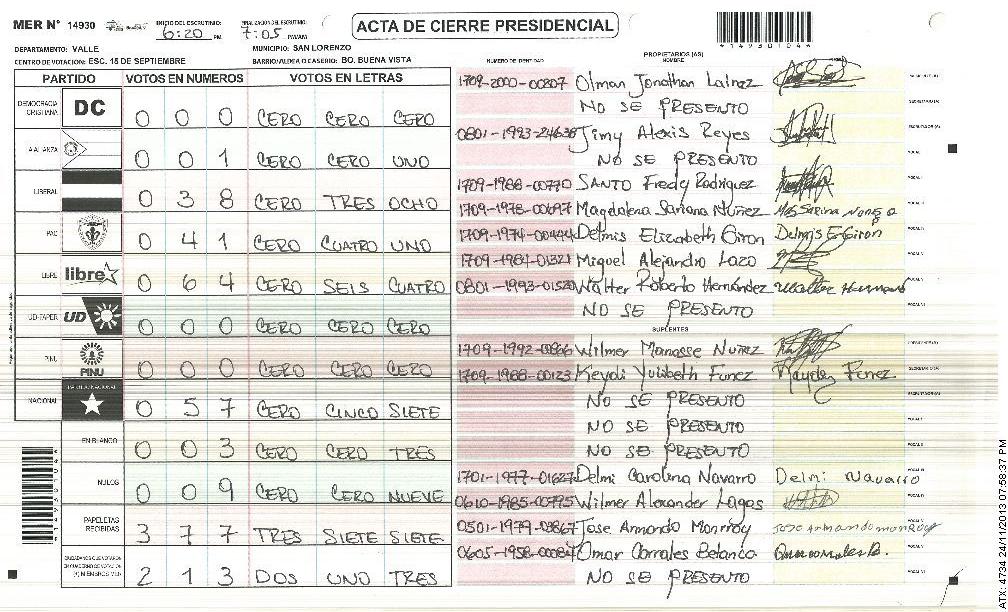 MER N° 14930
INICIO DEL ESCRUTINIO: 6:20 PM
FINALIZACION DEL ESCRUTINIO: 7:05 PM/AM
ACTA DE CIERRE PRESIDENCIAL
*14930104*
DEPARTAMENTO: VALLE
MUNICIPIO: SAN LORENZO
CENTRO DE VOTACION: ESC. 15 DE SEPTIEMBRE
BARRIO/ALDEA O CASERIO: BO. BUENA VISTA
PARTIDO VOTOS EN NUMEROS VOTOS EN LETRAS
DEMOCRACIA CRISTIANA DC 0 0 0 CERO CERO CERO
ALIANZA 0 0 1 CERO CERO UNO
LIBERAL 0 3 8 CERO TRES OCHO
PAC 0 4 1 CERO CUATRO UNO
LIBRE libre 0 6 4 CERO SEIS CUATRO
UD-FAPER UD 0 0 0 CERO CERO CERO
PINU PINU 0 0 0 CERO CERO CERO
NACIONAL PARTIDO NACIONAL 0 5 7 CERO CINCO SIETE
EN BLANCO 0 0 3 CERO CERO TRES
NULOS 0 0 9 CERO CERO NUEVE
PAPELETAS RECIBIDAS 3 7 7 TRES SIETE SIETE
CIUDADANOS QUE VOTARON EN CUADERNO DE VOTACION (+) MIEMBROS MER 2 1 3 DOS UNO TRES
NUMERO DE IDENTIDAD
PROPIETARIOS (AS)
NOMBRE
1709-2000-00807 Olman Jonathan Lainez
NO SE PRESENTO
0801-1993-24638 Jimy Alexis Reyes
NO SE PRESENTO
1709-1988-00770 SANTO Fredy Rodriguez
1709-1978-00697 Magdalena Sariana Nuñez
1709-1974-00444 Delmis Elizabeth Giron Delmis E Giron
1709-1984-01321 Miguel Alejandro Lazo
0801-1993-01520 Walter Roberto Hernández
NO SE PRESENTO
SUPLENTES
1709-1992-00866 Wilmer Manasse Nuñez
1709-1988-00123 Keydi Yulibeth Funez
NO SE PRESENTO
NO SE PRESENTO
NO SE PRESENTO
1701-1977-01627 Delmi Carolina Navarro Delmi Navarro
0610-1985-00795 Wilmer Alexander Lagos
0501-1979-03867 Jose Armando Monrroy Jose Armando monRoy
0605-1958-00084 Omar Corrales Betanco
NO SE PRESENTO
ATX: 4734 24/11/2013 07:58:37 PM